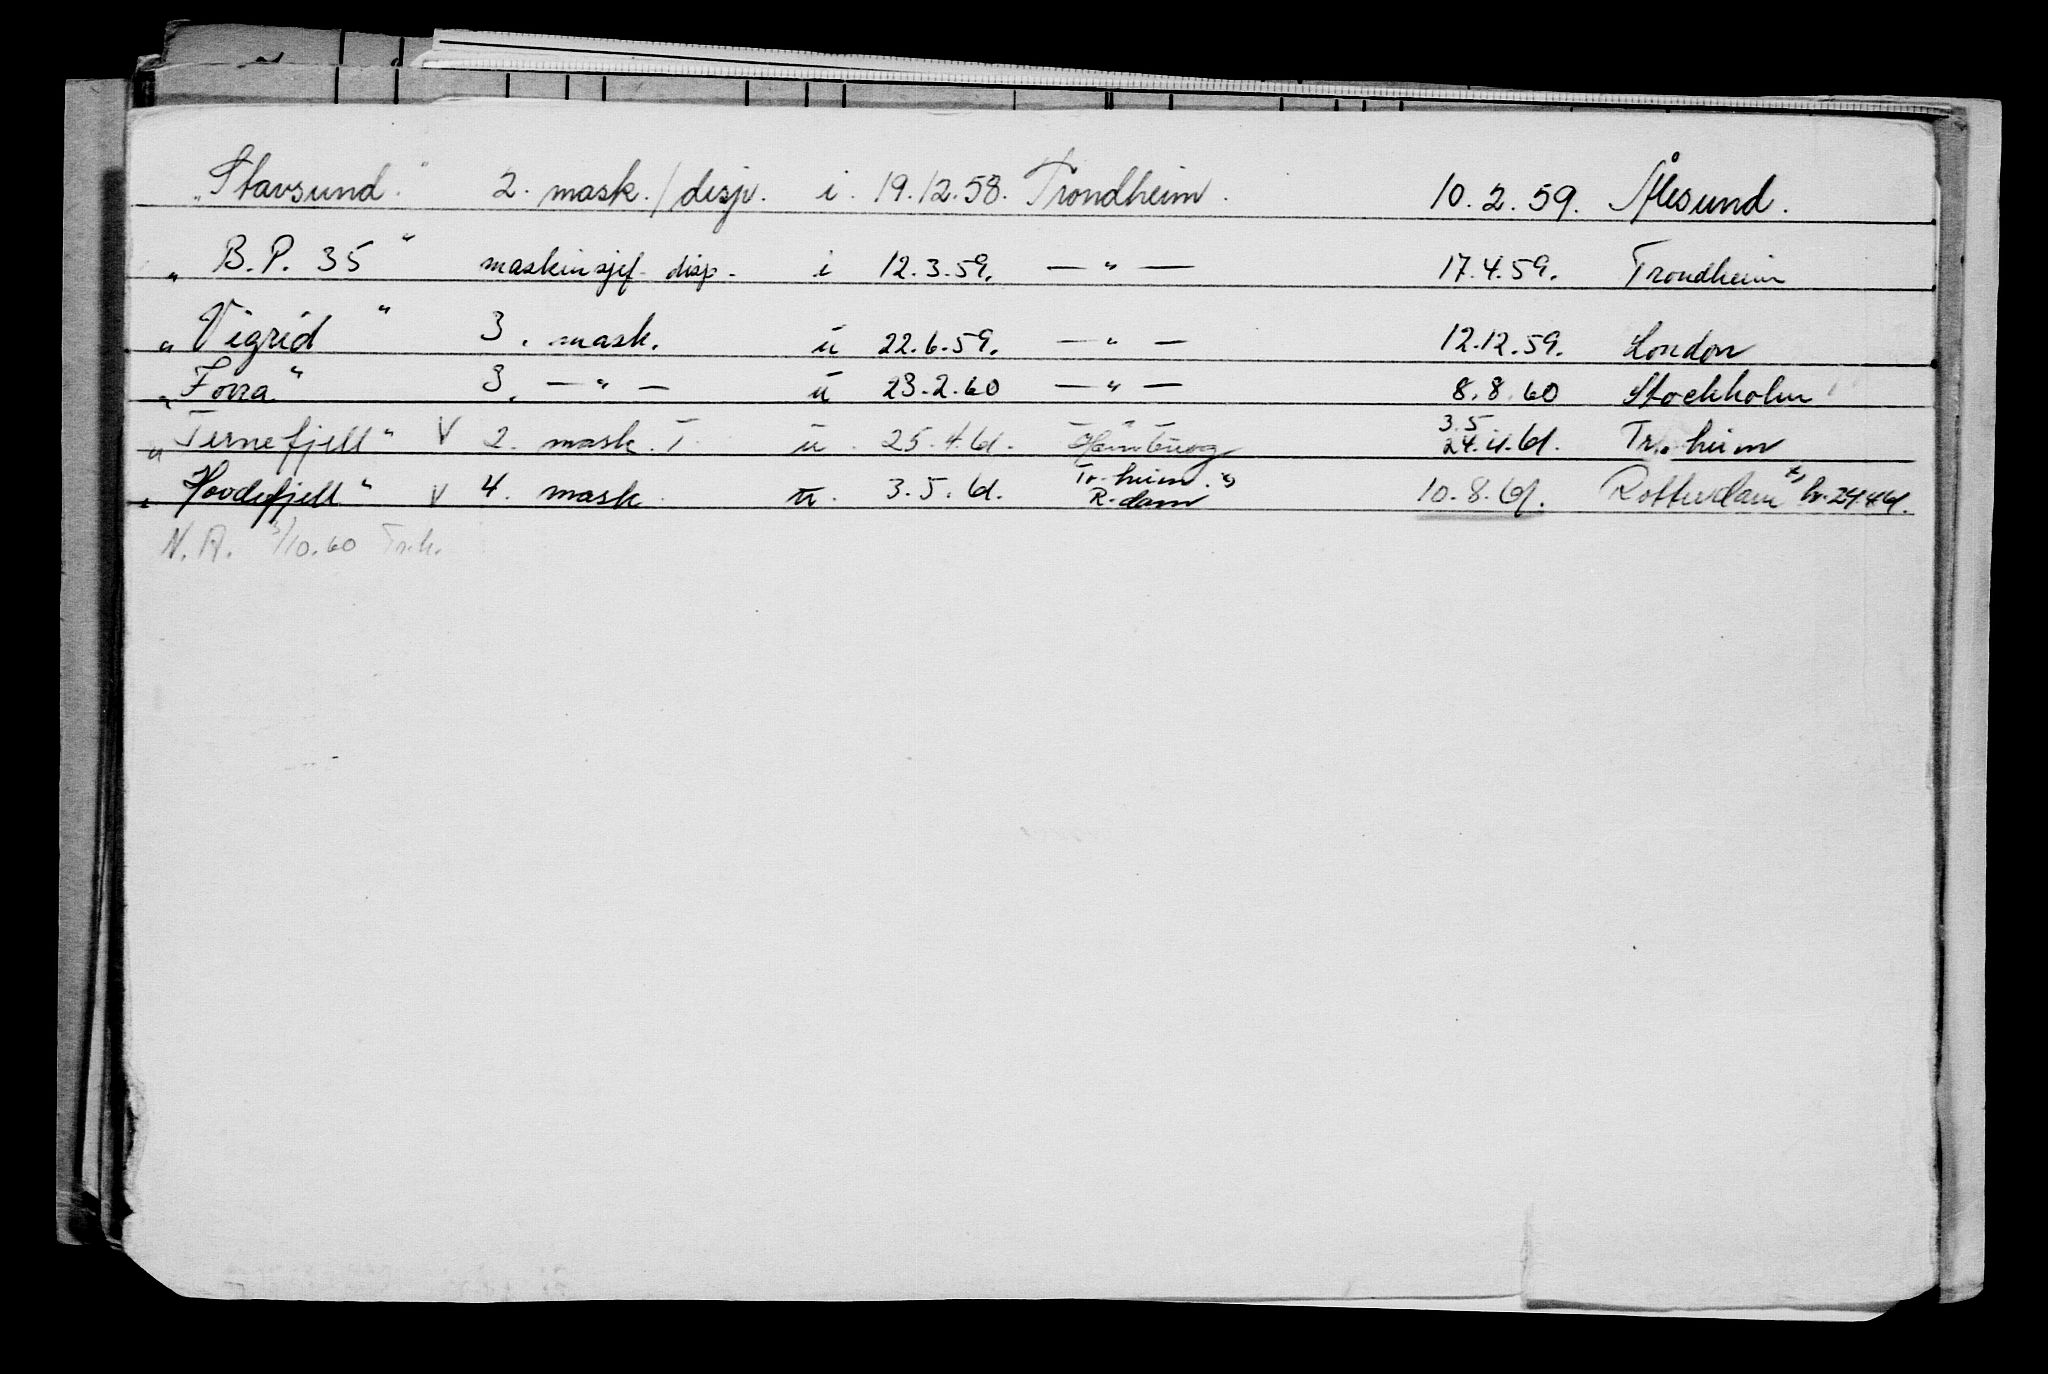 „Stavsund." 2. mask./disp. i. 19.12.58. Trondheim. 10.2.59. Ålesund.
„B.P. 35" maskinsjef. disp. i 12.3.59. — " — 17.4.59. Trondheim
„Vigrid" 3. mask. u 22.6.59. — " — 12.12.59. London
„Forra" 3. — " — u 23.2.60 — " — 8.8.60 Stockholm
„Ternefjell" V 2. mask. T. u. 25.4.61. Hamburg 3.5 24.4.61. Tr.heim
„Hovdefjell" V 4. mask. u. 3.5.61. Tr.heim. R.dam 10.8.61. Rotterdam
N.A. 3/10.60 Tr.h.